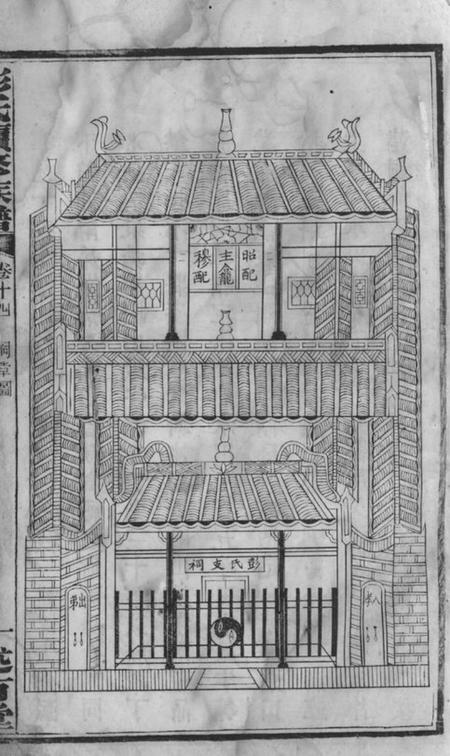 昭配
主龕
穆配
彭氏支祠
入孝
出弟
彭氏續修族譜
卷十四
一